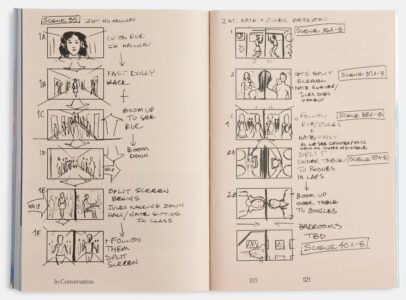 SCENE 35 INT. HS HALLWAY
1A
CU ON RUE
IN HALLWAY
1B
FAST DOLLY
BACK
1C
BOOM UP
TO SEE
RUE
1D
BOOM
DOWN
1E
SPLIT SCREEN
BEGINS
JULES WALKING DOWN
HALL / NATE SITTING
IN CLASS
1F
FOLLOW
THEM
SPLIT
SCREEN
In Conversation
INT. NATE + JULES BEDROOMS
1
SCENE 36A-B
2
SPLIT
SCREEN
SCENE 37A-B
NATE
JULES DOES
MAKEUP
FOLLOW
RUE/JULES
SCENE 38A-B
NATE
2A
SPLIT
UNDER TABLE
TO PHONES
IN LAPS
2B
BOOM UP
OVER TABLE
TO SINGLES
BEDROOMS
TBD
SCENE 40A-B
103
121